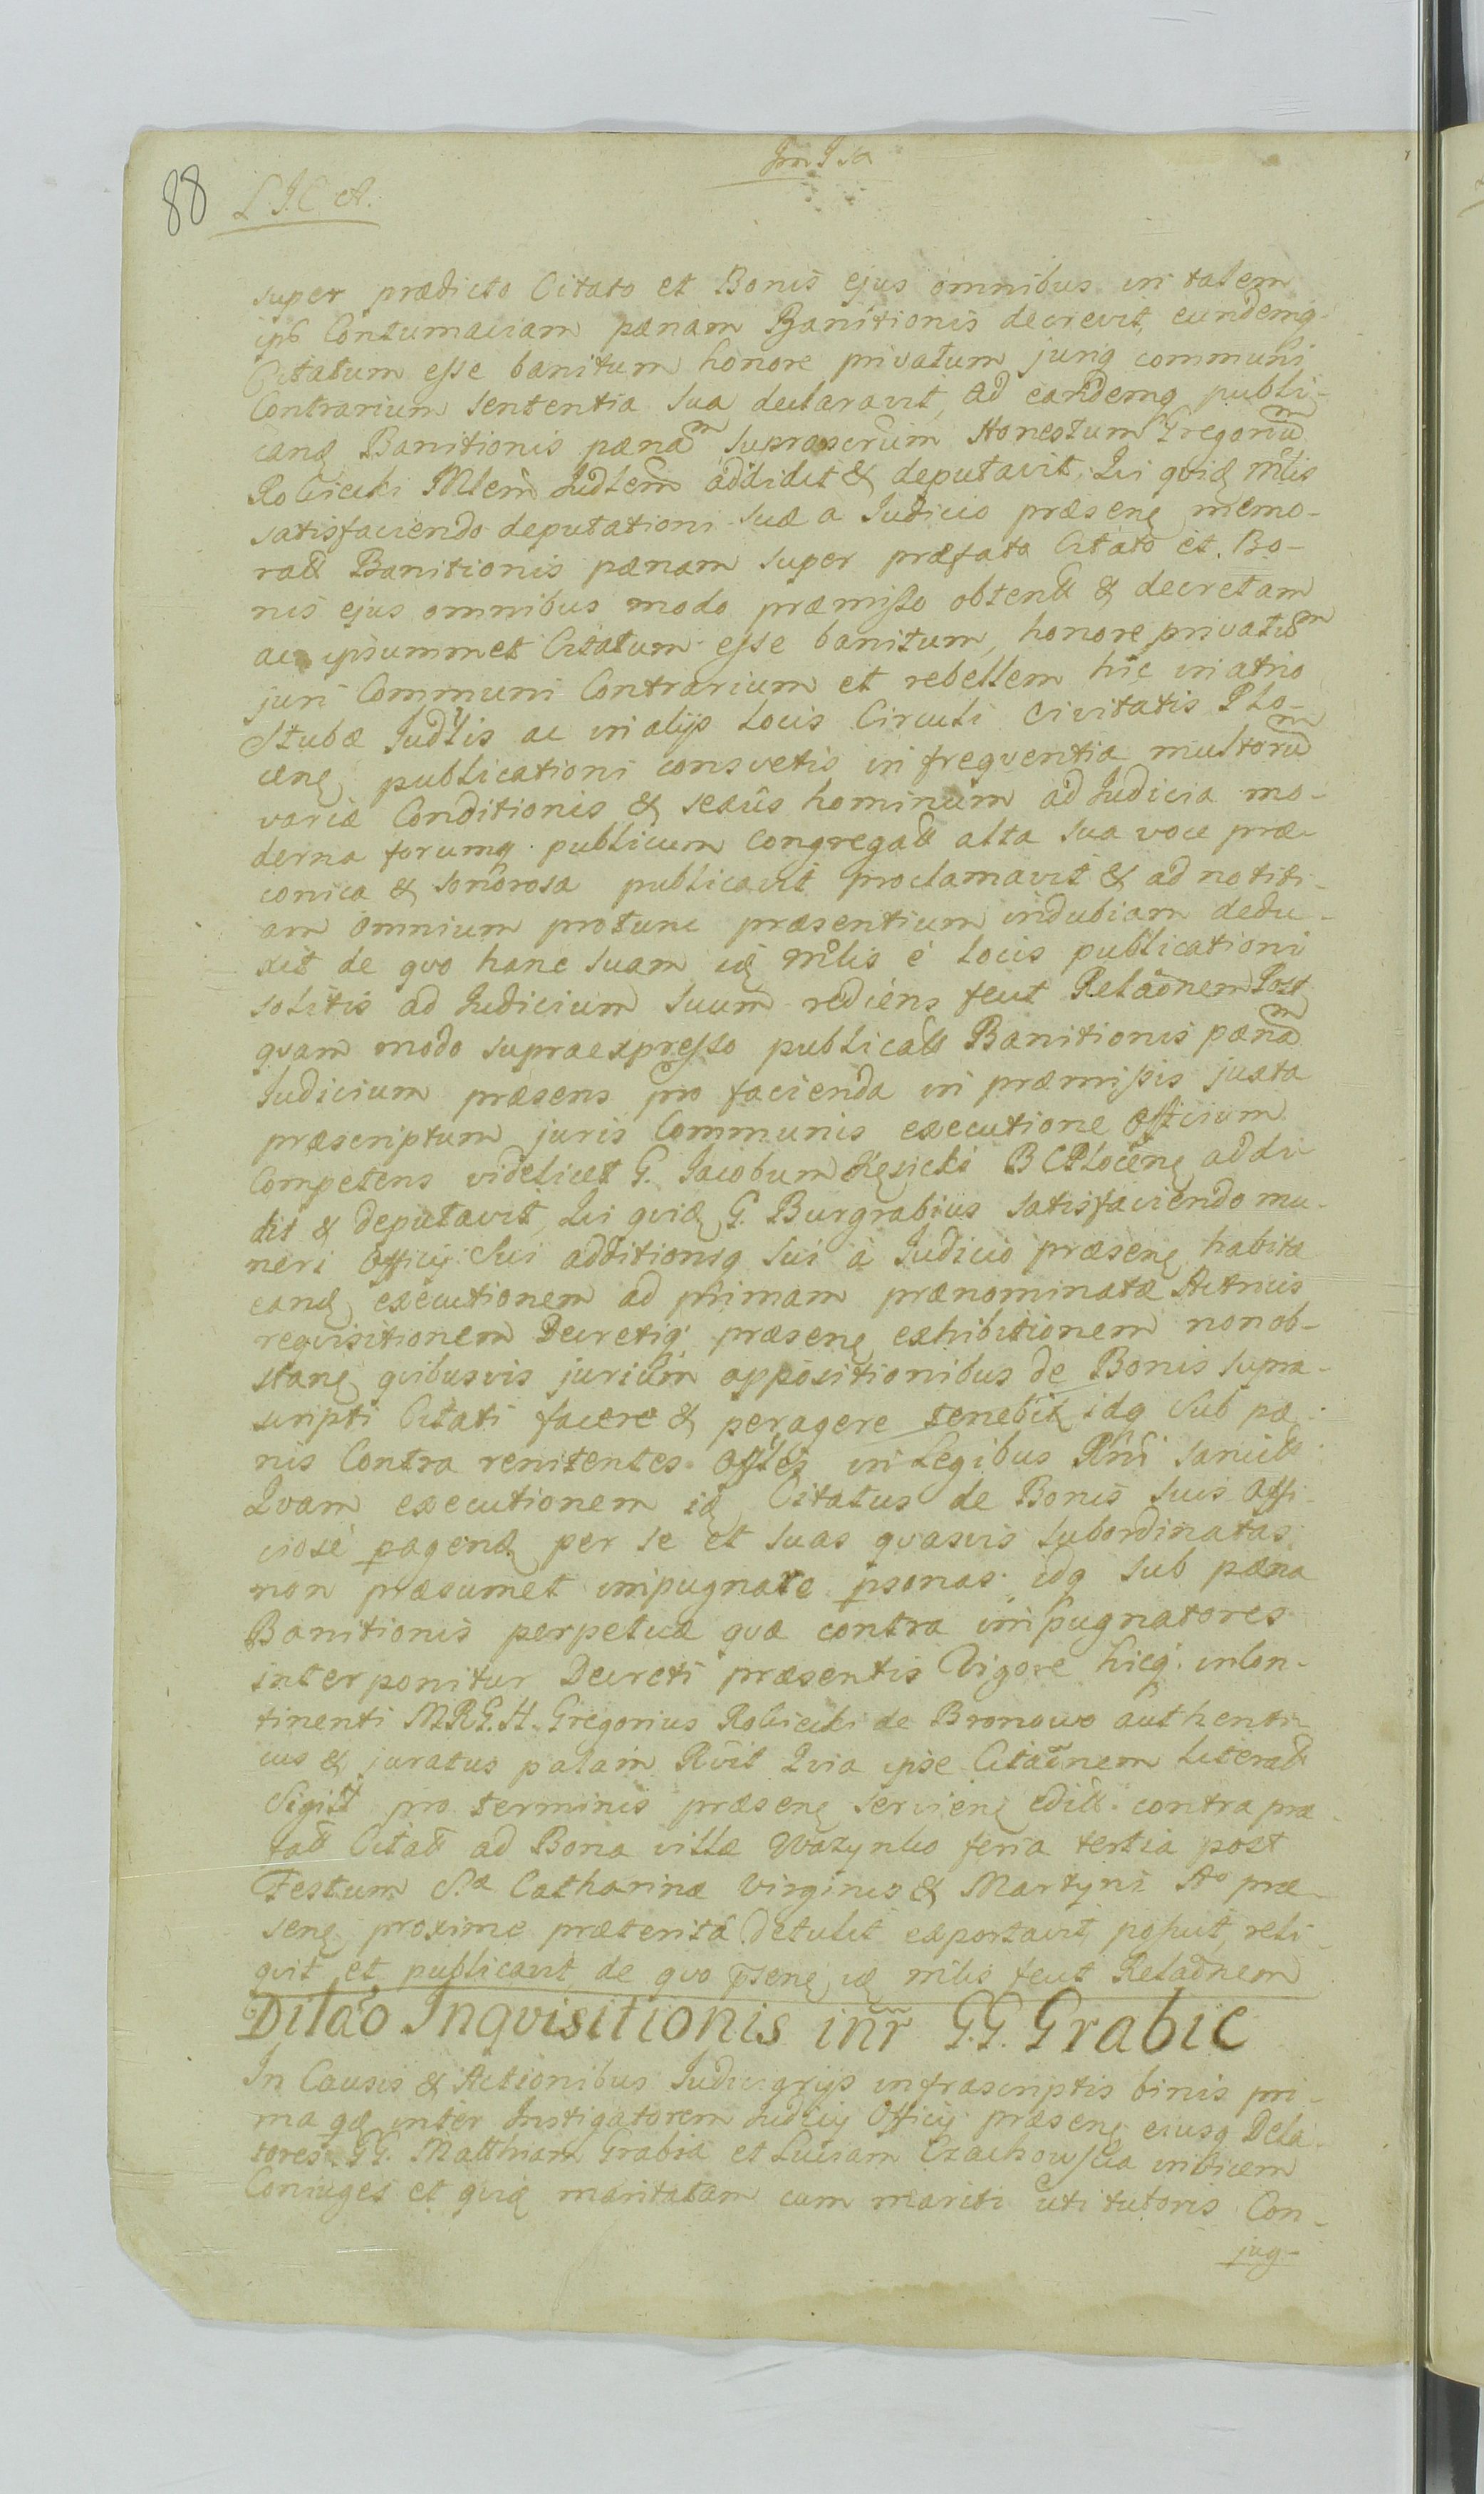 88
super prædicto Citato et Bonis ejus omnibus in talem
Contumaciam pænam Banitionis decrevit, eundemq
Citatum esse banitum honore privatum juriq communi
Contrarium sententia sua declaravit, ad eandemq publi-
cand Banitionis pænam suprascrum Honestum Gregorium
Rościcki Mlem Judlem addidit & deputavit, Qui quid mlis
satisfaciendo deputationi suæ a Judicio præsen memo-
ratt Banitionis pænam super præfato Citato et Bo-
nis ejus omnibus modo præmisso obtentt & decretam
ac ipsummet Citatum esse banitum, honore privatum
juri Communi Contrarium et rebellem hic in atrio
Stubæ Judlis ac in alijs Locis Circuli Civitatis Plo-
cen publicationi consvetis in freqventia multorum
variæ Conditionis & sexûs hominum ad Judicia mo-
derna forumq publicum congregatt alta sua voce præ-
conica & sonorosa publicavit proclamavit & ad notiti-
am omnium protunc præsentium indubiam dedu-
xit de qvo hanc suam id mlis è Locis publicationi
solitis ad Judicium suum rediens fecit Relaõnem Post
qvam modo supraexpresso publicatt Banitionis pænam
Judicium præsens pro facienda in præmissis juxta
præscriptum juris Communis executione Officium
Competens videlicet G. Jacobum Kęsicki B C Plocen addi
dit & deputavit, Qui quid G. Burgrabius satisfaciendo mu-
neri Officij Sui additioniq sui à Judicio præsen habitæ
eand executionem ad primam prænominatæ Actricis
reqvisitionem Decretiq præsen exhibitionem non ob-
stan qvibusvis jurium oppositionibus de Bonis supra-
scripti Citati facere & peragere tenebit idq sub pæ-
nis Contra renitentes Offles in Legibus Rni sancitt
Qvam executionem id Citatus de Bonis suis Offi-
ciosè pagend per se et suas qvasvis subordinatas
non præsumet impugnare psonas idq sub pæna
Banitionis perpetuæ qvæ contra impugnatores
interponitur Decreti præsentis Vigore hicq incon-
tinenti MRG. H. Gregorius Rościcki de Bronowo authenti-
cus & juratus palam Rvit Qvia ipse Citaõnem Literatt
Sigill pro terminis præsen servien editt contra præ-
fatt Citatt ad Bona villæ Ważynko feria tertia post
Festum S.æ Catharinæ Virginis & Martyris Aº præ-
sen proxime præterita detulit exportavit, posuit, reli-
qvit et publicavit, de qvo psen id mlis fecit Relaõnem
Dilaõ Inqvisitionis intr G.G. Grabie
In Causis & Actionibus Judiciarijs infrascriptis binis pri-
ma qd inter Instigatorem Judicij Officij præsen ejusq Dela-
tores GG. Matthiam Grabia et Luciam Czachowska invicem
Conjuges et quid maritatam cum mariti uti tutoris Con-
jug-